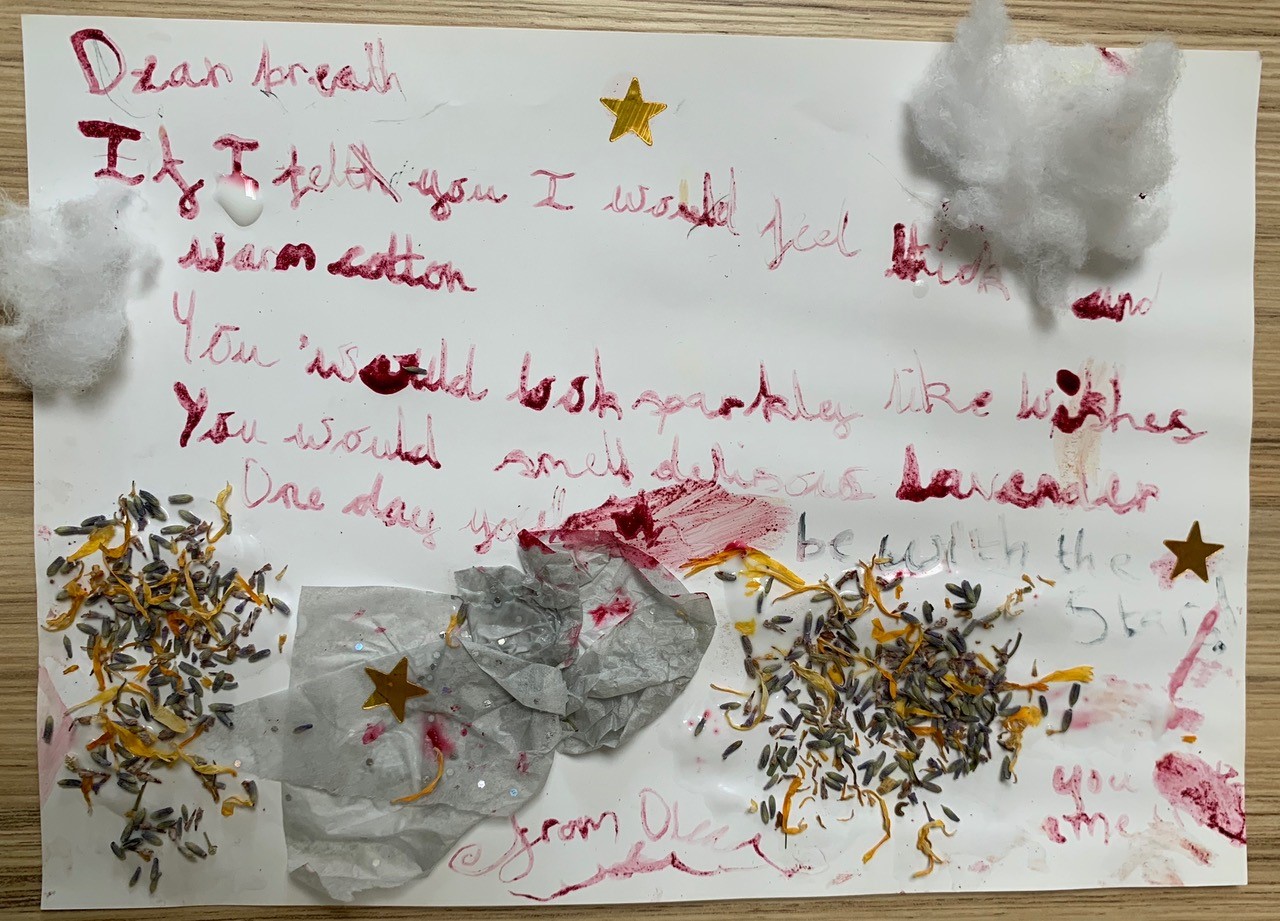 Dear breath
If I felt you I would feel thick and
warm cotton
You would look sparkley like wishes
You would smell delisous Lavender
One day you'll be with the
from
you